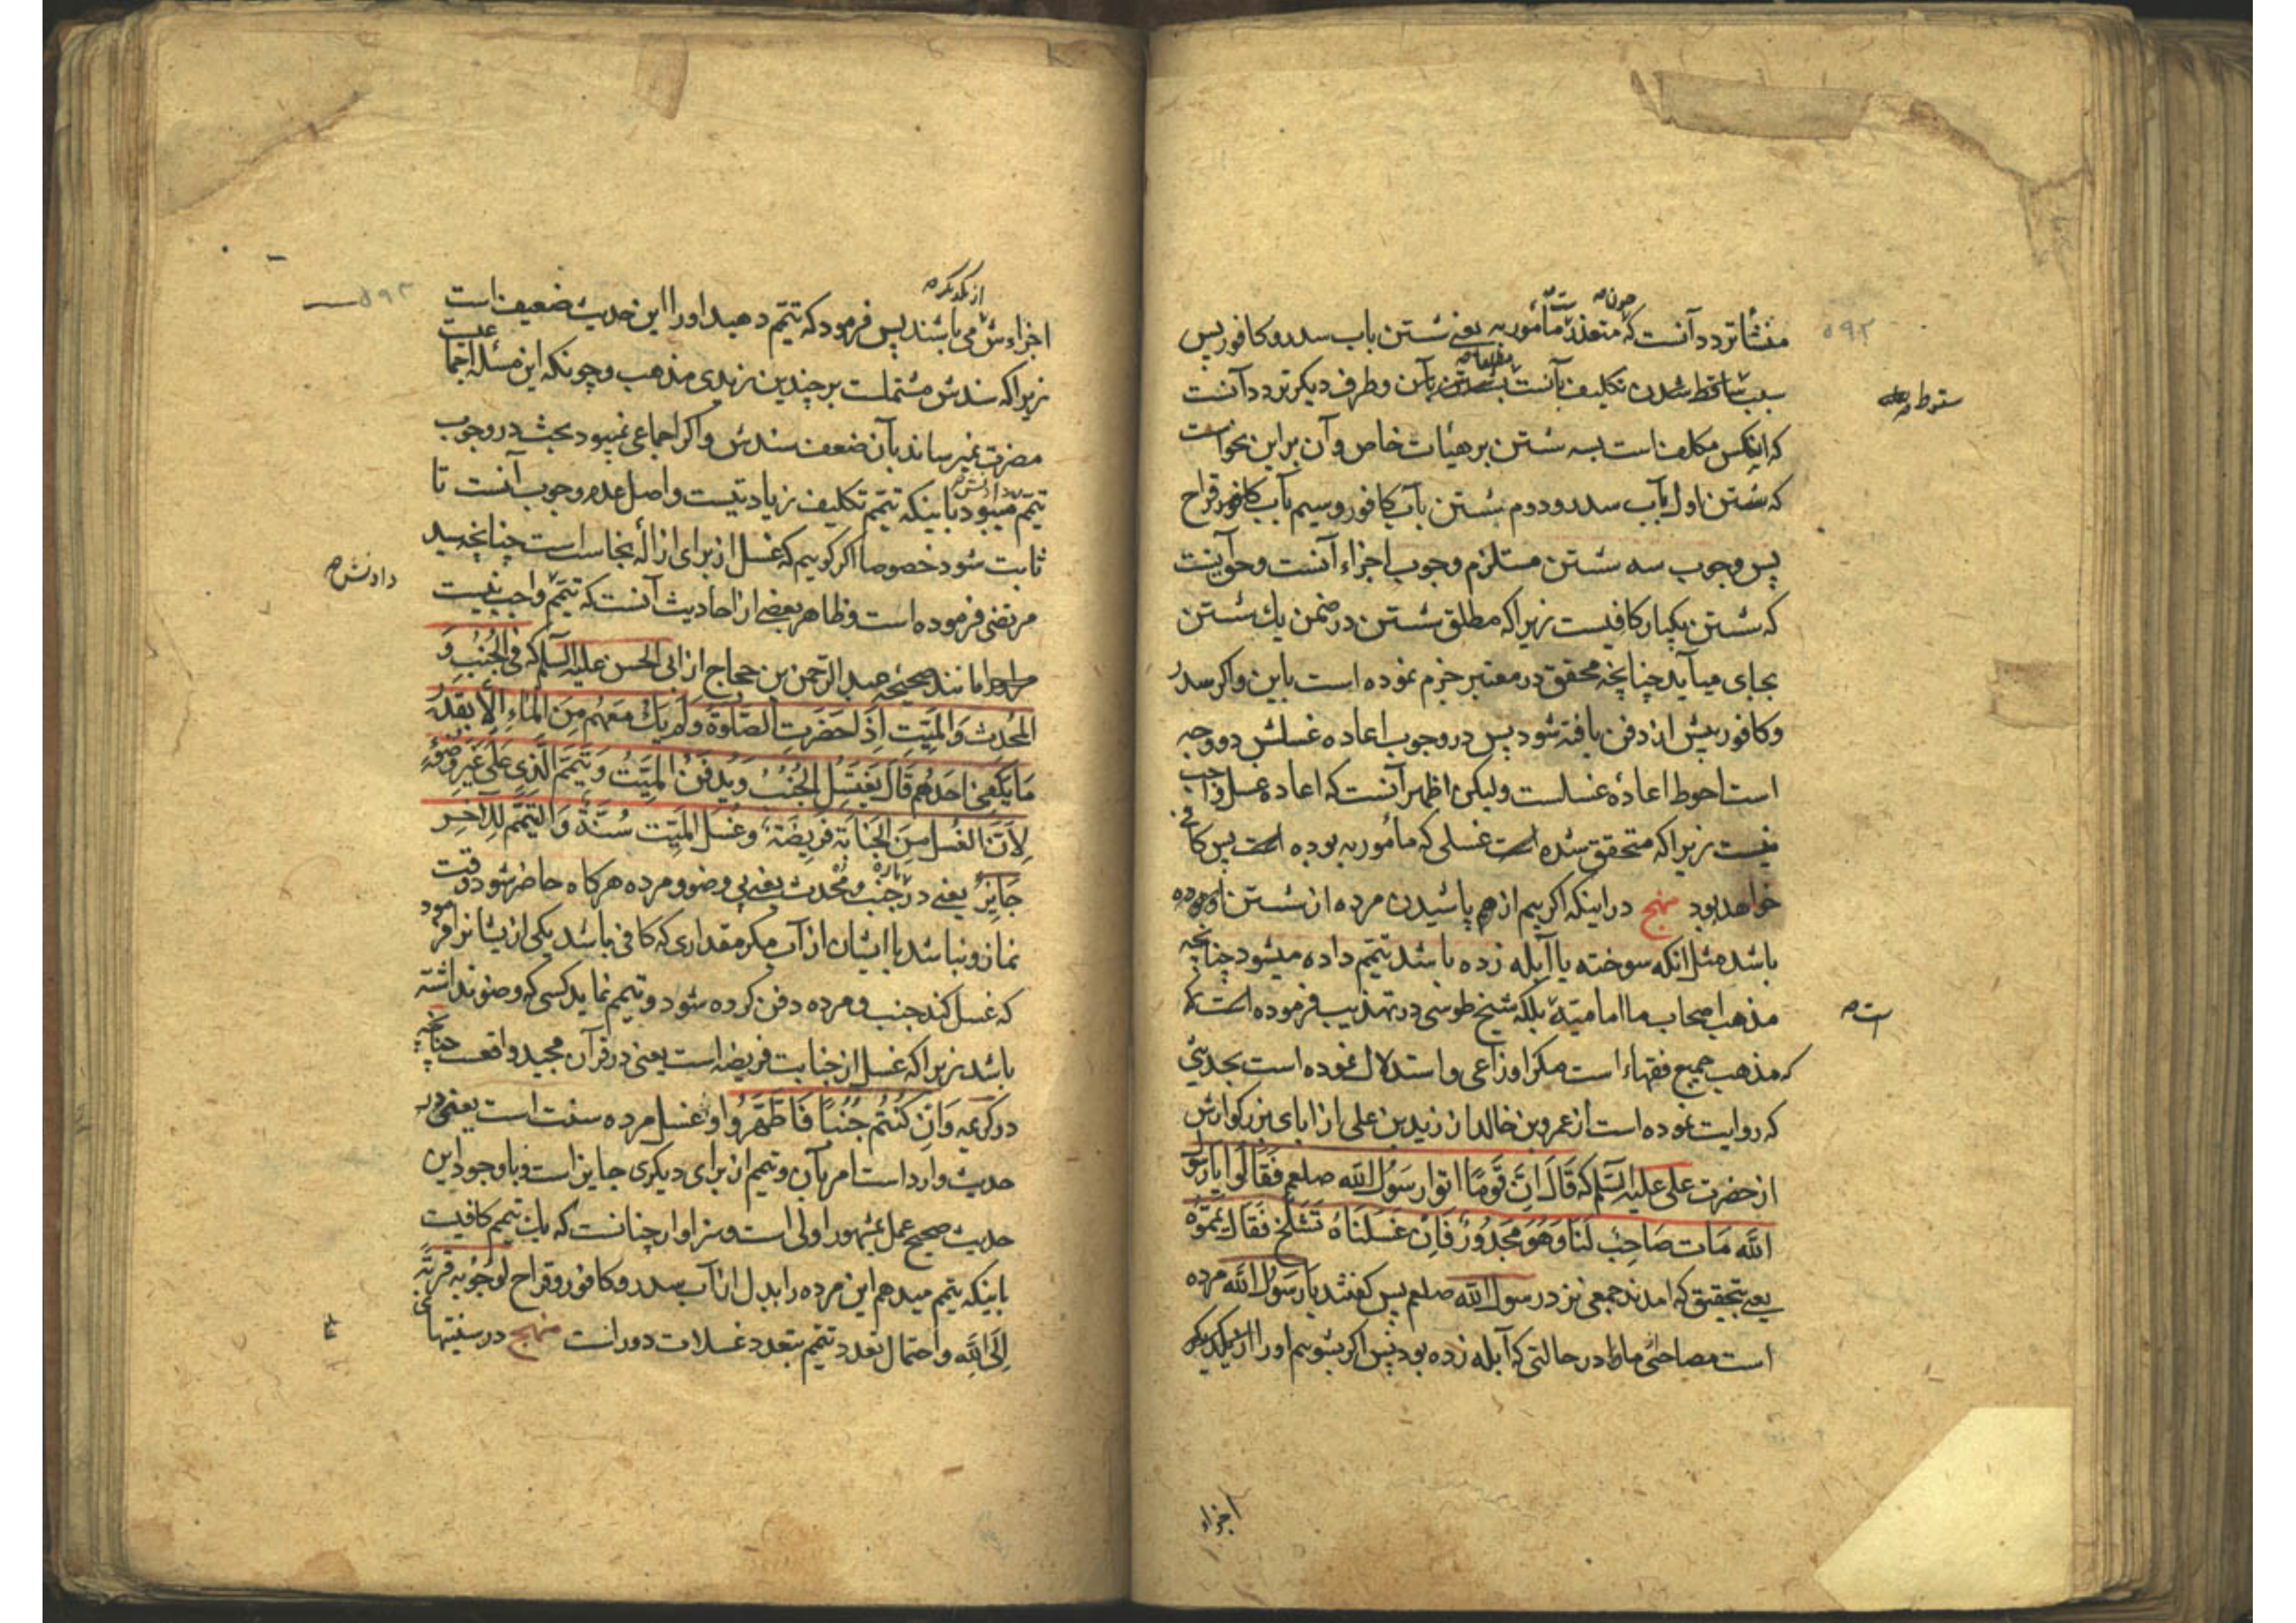 ۵۹۲
منشأ تردد آنست که متعذر مأمور به یعنی شستن باب سدر و کافور پس
چون
ست
سبب ساقط شدن تکلیف بآنست بآن و طرف دیکر تردد آنست
سقوط
که اینکس مکلف است بسه شستن بر هیات خاص و آن براین نحو است
که شستن اول بآب سدر و دوم شستن بآب کافور و سیم بآب قراح
پس وجوب سه شستن مستلزم وجوب اجزاء آنست و حق آینست
که شستن یکبار کافیست زیرا که مطلق شستن در ضمن یك شستن
بجای میآید چنانچه محقق در معتبر جزم نموده است باین و اکر سدر
و کافور پیش از دفن یافته شود پس در وجوب اعاده غسلش دو وجه
است احوط اعاده غسلست ولیکن اظهر آنست که اعاده غسل واجب
نیست زیرا که متحقق شده است غسلی که مأمور به بوده است پس کافی
خواهد بود منهج در اینکه اکر بیم از هم پاشیدن مرده از شستن او بوده
باشد مثل انکه سوخته یا آبله زده باشد تیمم داده میشود چنانچه
مذهب اصحاب ما امامیته بلکه شیخ طوسی در تهذیب فرموده است که
ست
که مذهب جمیع فقهاء است مکر اوزاعی و استدلال نموده است بحدیثی
که روایت نموده است از عمرو بن خالد از زید بن علی از ابای بزرکوارش
از حضرت علی علیه السلم که قَالَ اِنَّ قَومًا اتوا رَسُولُ الله صلعم فَقَالُوا یا رَسُوَل
اللّٰه مَات صَاحِبٌ لَنَا وَهُوَ مَجدُورٌ فَاِن غَسَلنَاهُ تَسَلَّخ فَقَالَ یَمِّمُوُه
یعنی بتحقیق که امدند جمعی نزد رسول الله صلعم پس کفتند یا رَسُولُ الله مرده
است مصاحبی ما در حالتی که آبله زده بود پس اکر بشویم او را از یکدیکر
اجزاء
۵۹۳
از یکدیکر
اجزاءش می باشند پس فرمود که تیمم دهید اورا این حدیث ضعیف است
زیرا که سندش مشتملست بر چندین زیدی مذهب و چونکه این مسئله اجماعیست
مضرت نمیرساند بآن ضعف سندش و اکر اجماعی نمیبود بحث در وجوب
تیمم میبود باینکه تیمم تکلیف زیادتیست و اصل عدم وجوب آنست تا
ثابت شود خصوصا اکر کوییم که غسل از برای ازاله نجاست است چنانچه سید
مرتضی فرموده است و ظاهر بعضی از احادیث آنست که تیمم واجب نیست
دادنش
مانند صحیحه عبد الرّحمن بن حجاج از ابی الحسن علیه السلم که فی الجُنُبِ وَ
المُحدِث وَالمَیّتِ اِذَا حَضَرتِ الصّلوةَ وَلَم یَكُ مَعَهُم مِنَ المَاءِ اِلّا بِقَدرُ
مَا یَکفِی اَحَدهُم قَالَ یَغتَسِل الجُنُبُ وَ یُدفَنُ المَیّتُ وَ یَتَیَمّمَ الّذِی عَلَی غَیرِ وضُوُءٍ
لِاَنَّ الغُسل مِنَ الجَنَابَةِ فَرِیضَة وَ غُسل المَیّت سُنَّة وَ التّیَمّم لِلآخِر
جَایِزٌ یعنی در جنب و محدث یعنی بی وضو و مرده هرکاه حاضر شود وقت
نماز و نباشد با ایشان از آب مکر مقداری که کافی باشد یکی از یشانرا فرمود
که غسل کند جنب و مرده دفن کرده شود و تیمم نماید کسی که وضو نداشته
باشد زیرا که غسل از جنابت فریضه است یعنی در قرآن مجید واقعست چنانچه
در کریمه وَ اِن کُنتُم جُنُباً فَاطَّهَّرُوا و غسل مرده سنت است یعنی در
حدیث وارد است امر بآن و تیمم از برای دیکری جایز است و با وجود این
حدیث صحیح عمل بمشهور اولی است و سزاوار چنانست که یك تیمم کافیست
باینکه تیمم میدهم این مرده را بدل از آب سدر و کافور و قراح لوجوبه قربَة
اِلَی اللّٰه و احتمال تعدد تیمم بتعدد غسلات دور است منهج در سنتهای